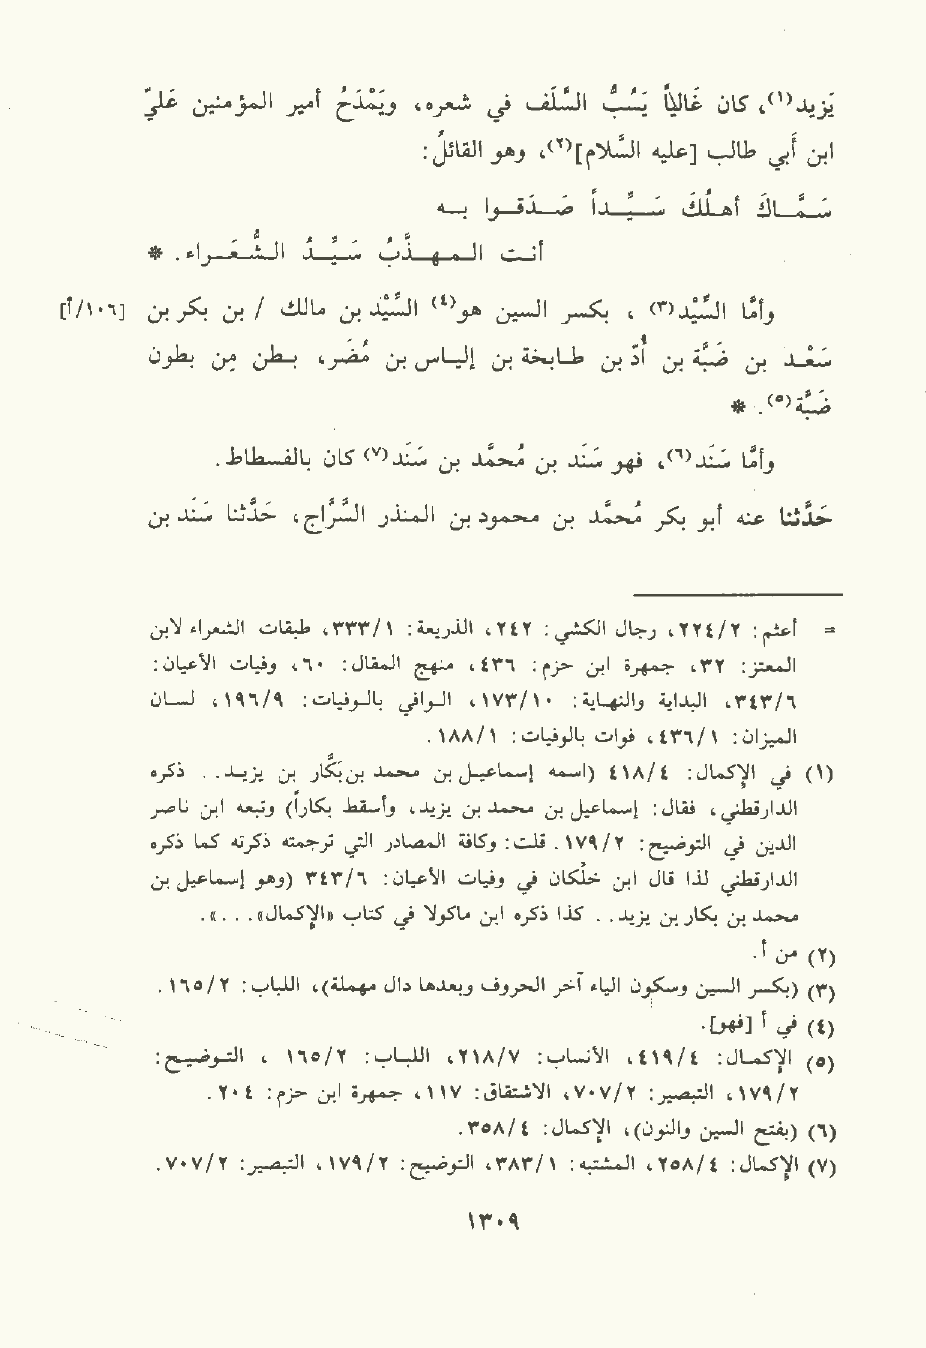 يَزيد(١)، كان غَالياً يَسُبُّ السَّلَف في شعره، ويَمْدَحُ أمير المؤمنين عَليَّ
ابن أَبي طالب [عليه السَّلام](٢)، وهو القائلُ:
سَــمَّــاكَ أهــلُكَ سَــيِّــداً صَــدَقــوا بــه
أنــت الــمــهــذَّبُ سَــيِّــدُ الــشُّــعَــراء. *
وأمَّا السِّيْد(٣) ، بكسر السين هو(٤) السِّيْد بن مالك / بن بكر بن [١٠٦/أ]
سَعْد بن ضَبَّة بن أُدّ بن طابخة بن إلياس بن مُضَر، بطن مِن بطون
ضَبَّة(٥). *
وأمَّا سَنَد(٦)، فهو سَنَد بن مُحَمَّد بن سَنَد(٧) كان بالفسطاط.
حَدَّثنا عنه أبو بكر مُحمَّد بن محمود بن المنذر السَّرَّاج، حَدَّثنا سَنَد بن
= أعثم: ٢٢٤/٢، رجال الكشي: ٢٤٢، الذريعة: ٣٣٣/١، طبقات الشعراء لابن
المعتز: ٣٢، جمهرة ابن حزم: ٤٣٦، منهج المقال: ٦٠، وفيات الأعيان:
٣٤٣/٦، البداية والنهاية: ١٧٣/١٠، الوافي بالوفيات: ١٩٦/٩، لسان
الميزان: ٤٣٦/١، فوات بالوفيات: ١٨٨/١.
(١) في الإكمال: ٤١٨/٤ (اسمه إسماعيل بن محمد بن بَكَّار بن يزيد.. ذكره
الدارقطني، فقال: إسماعيل بن محمد بن يزيد، وأسقط بكاراً) وتبعه ابن ناصر
الدين في التوضيح: ١٧٩/٢. قلت: وكافة المصادر التي ترجمته ذكرته كما ذكره
الدارقطني لذا قال ابن خلكان في وفيات الأعيان: ٣٤٣/٦ (وهو إسماعيل بن
محمد بن بكار بن يزيد.. كذا ذكره ابن ماكولا في كتاب «الإكمال»...».
(٢) من أ.
(٣) (بكسر السين وسكون الياء آخر الحروف وبعدها دال مهملة)، اللباب: ١٦٥/٢.
(٤) في أ [فهو].
(٥) الإكمال: ٤١٩/٤، الأنساب: ٢١٨/٧، اللباب: ١٦٥/٢ ، التوضيح:
١٧٩/٢، التبصير: ٧٠٧/٢، الاشتقاق: ١١٧، جمهرة ابن حزم: ٢٠٤.
(٦) (بفتح السين والنون)، الإكمال: ٣٥٨/٤.
(٧) الإكمال: ٢٥٨/٤، المشتبه: ٣٨٣/١، التوضيح: ١٧٩/٢، التبصير: ٧٠٧/٢.
١٣٠٩